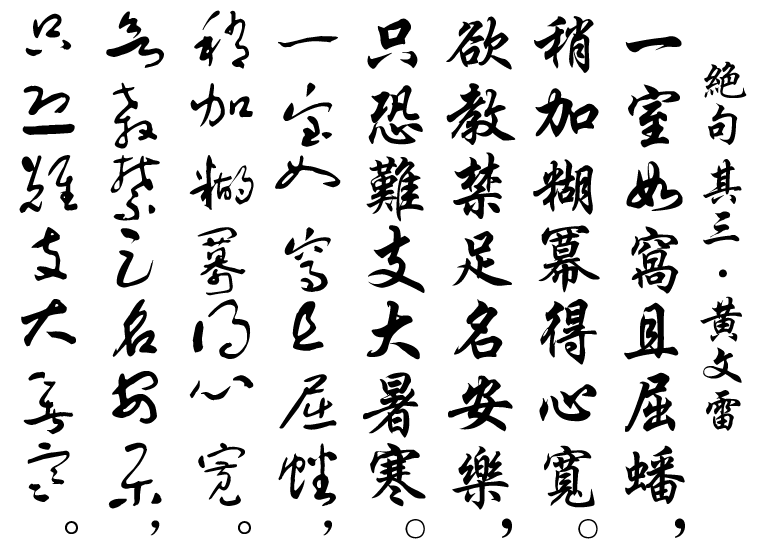 絕句 其三・黃文雷
一室如窩且屈蟠，
稍加糊冪得心寬。
欲教禁足名安樂，
只恐難支大暑寒。
一室如窩且屈蟠，
稍加糊冪得心寬。
欲教禁足名安樂，
只恐難支大暑寒。